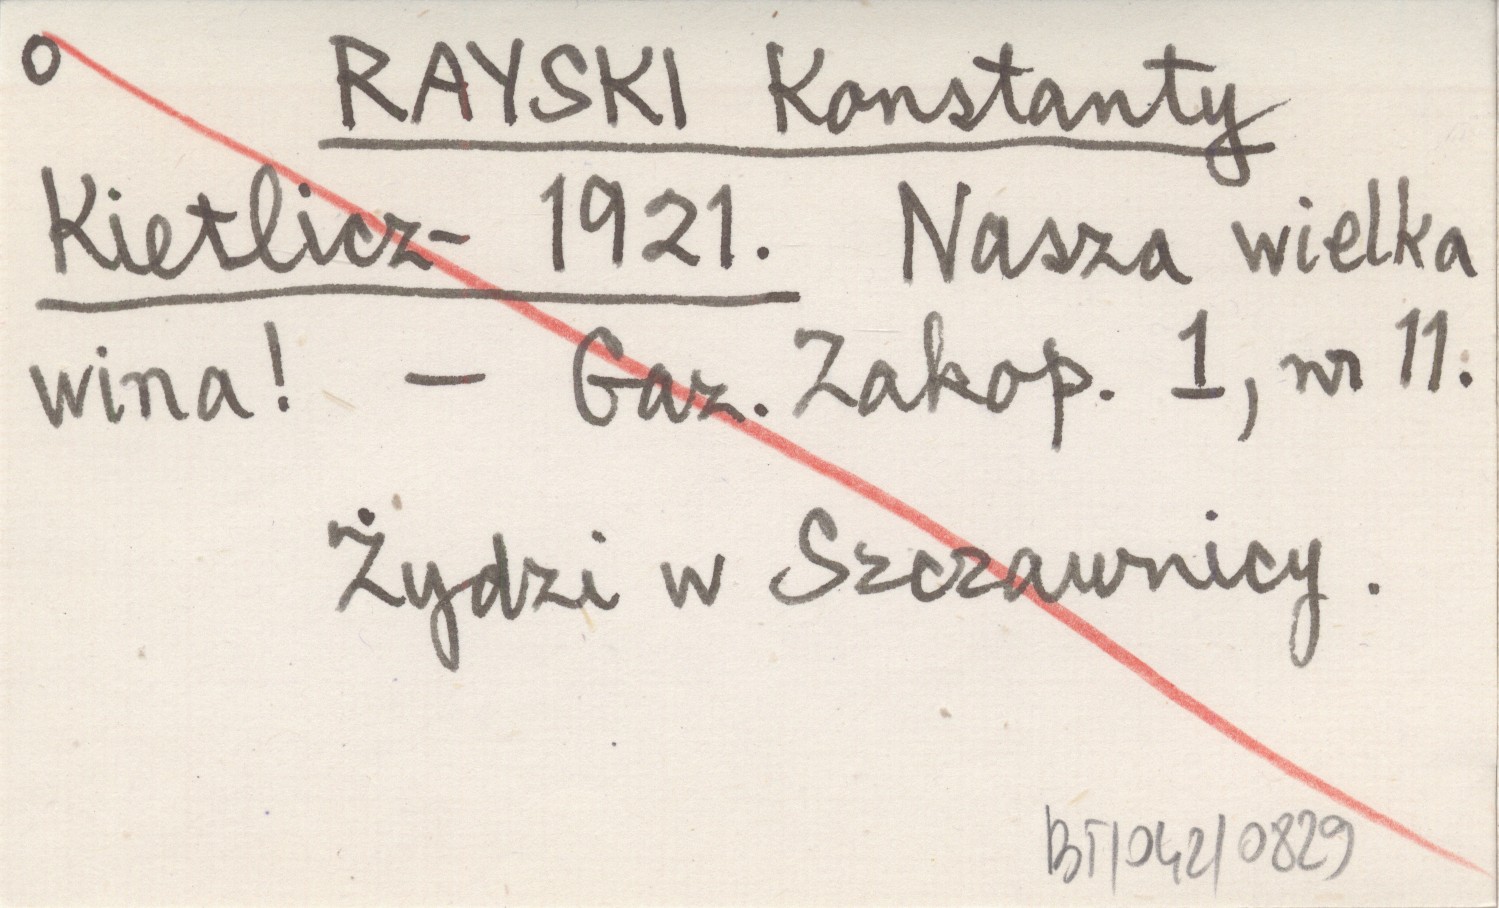 o RAYSKI Konstanty
Kietlicz- 1921. Nasza wielka
wina! – Gaz. Zakop. 1, nr 11.
Żydzi w Szczawnicy.
BT/042/0829